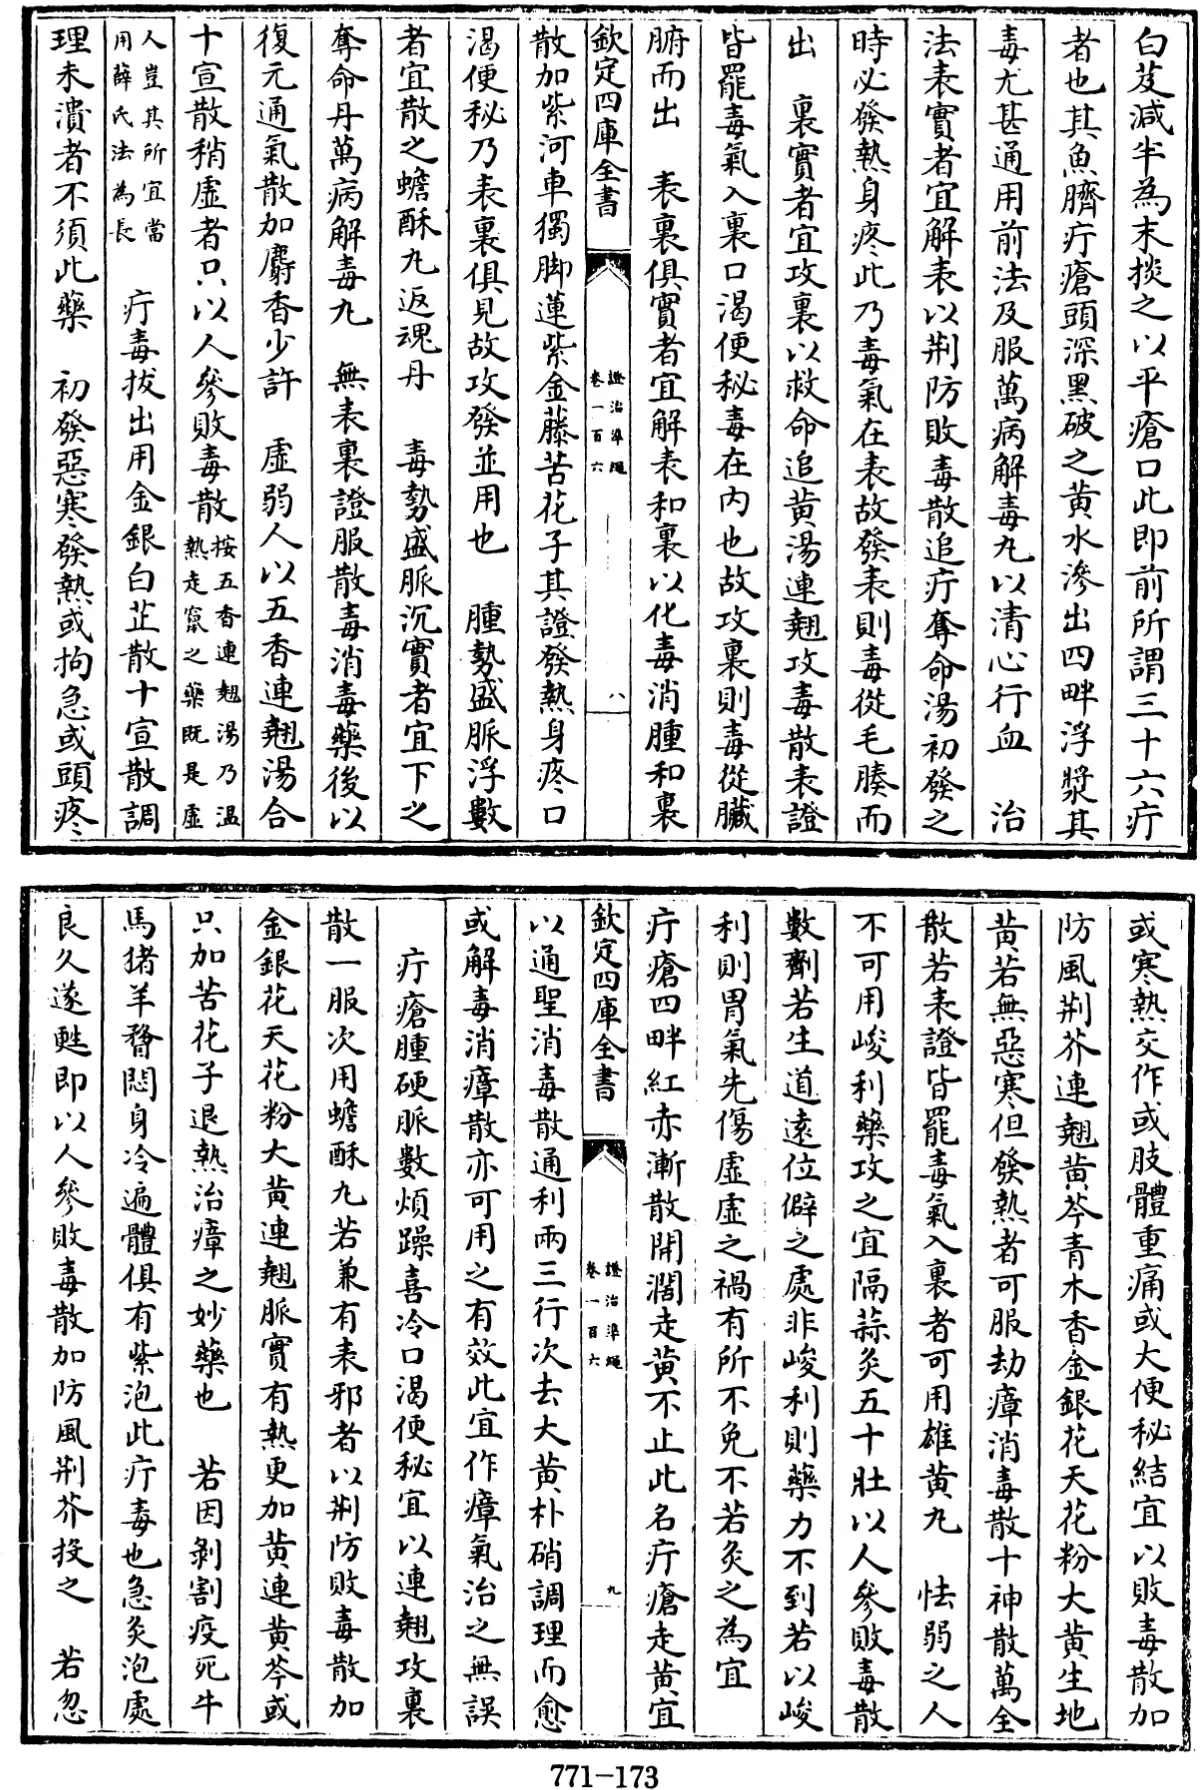 白芨減半為末摻之以平瘡口此即前所謂三十六疔
者也其魚臍疔瘡頭深黑破之黄水滲出四畔浮漿其
毒尤甚通用前法及服萬病解毒丸以清心行血　治
法表實者宜解表以荆防敗毒散追疔奪命湯初發之
時必發熱身疼此乃毒氣在表故發表則毒從毛腠而
出　裏實者宜攻裏以救命追黄湯連翹攻毒散表證
皆罷毒氣入裏口渴便秘毒在内也故攻裏則毒從臓
腑而出　表裏俱實者宜解表和裏以化毒消腫和裏
欽定四庫全書
證治準繩
卷一百六
八
散加紫河車獨脚蓮紫金藤苦花子其證發熱身疼口
渴便秘乃表裏俱見故攻發並用也　腫勢盛脈浮數
者宜散之蟾酥丸返魂丹　毒勢盛脈沉實者宜下之
奪命丹萬病解毒丸　無表裏證服散毒消毒藥後以
復元通氣散加麝香少許　虚弱人以五香連翹湯合
十宣散稍虚者只以人參敗毒散按五香連翹湯乃温
熱走竄之藥既是虚
人豈其所宜當
用薛氏法為長　疔毒拔出用金銀白芷散十宣散調
理未潰者不須此藥　初發惡寒發熱或拘急或頭疼
或寒熱交作或肢體重痛或大便秘結宜以敗毒散加
防風荆芥連翹黄芩青木香金銀花天花粉大黄生地
黄若無惡寒但發熱者可服劫瘴消毒散十神散萬全
散若表證皆罷毒氣入裏者可用雄黄丸　怯弱之人
不可用峻利藥攻之宜隔蒜灸五十壯以人參敗毒散
數劑若生道遠位僻之處非峻利則藥力不到若以峻
利則胃氣先傷虚虚之禍有所不免不若灸之為宜
疔瘡四畔紅赤漸散開濶走黄不止此名疔瘡走黄宜
欽定四庫全書
證治準繩
卷一百六
九
以通聖消毒散通利兩三行次去大黄朴硝調理而愈
或解毒消瘴散亦可用之有效此宜作瘴氣治之無誤
疔瘡腫硬脈數煩躁喜冷口渴便秘宜以連翹攻裏
散一服次用蟾酥丸若兼有表邪者以荆防敗毒散加
金銀花天花粉大黄連翹脈實有熱更加黄連黄芩或
只加苦花子退熱治瘴之妙藥也　若因剝割疫死牛
馬猪羊瞀悶身冷遍體俱有紫泡此疔毒也急灸泡處
良久遂甦即以人參敗毒散加防風荆芥投之　若忽
771-173